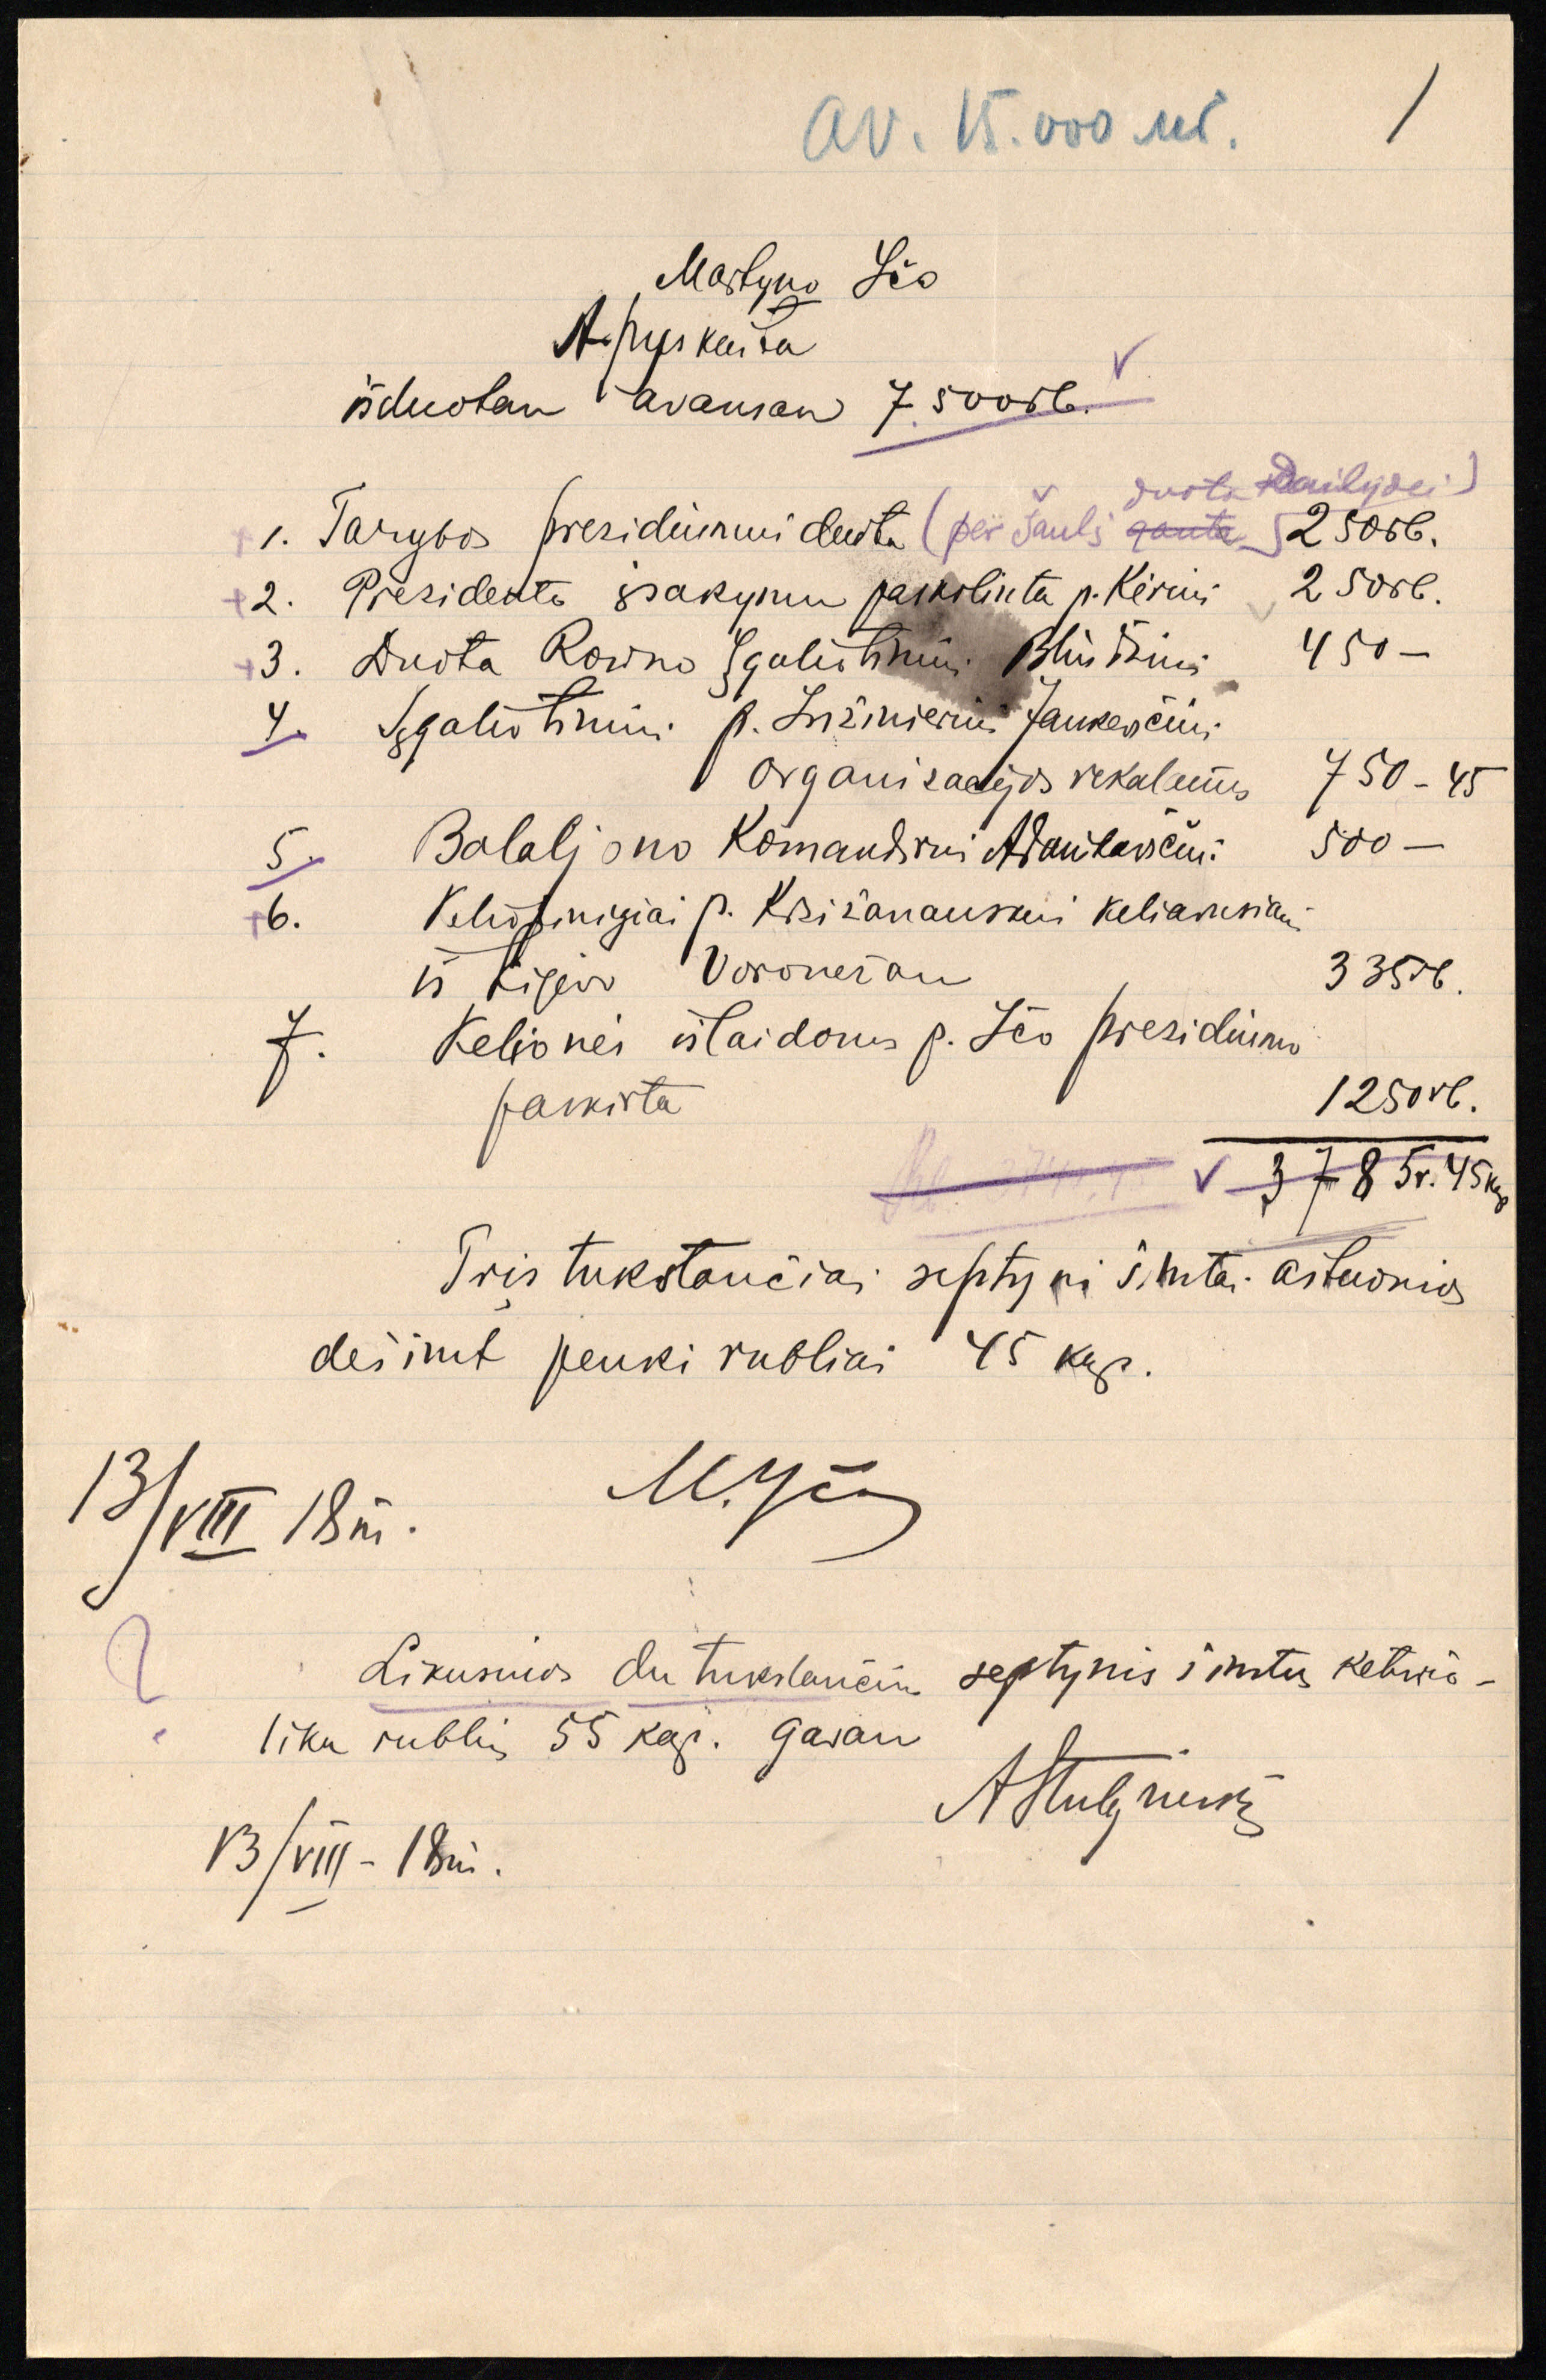 av. 15.000 m. 1
Martyno Yčo
Apyskaita
išduotan avansan 7.500rb.
duota Dailydei)
1. Tarybos presidiumui duota (per Šaulį gauta 250rb.
2. Presidento įsakymu paskolinta p. 250rb.
3. Duota Rowno Įgaliotiniui 450–
4. Įgaliotiniui p. Inžinieriui Jankevičiui
organizacijos reikalams 750-45
5. Bataljono Komandirui 500–
6. Keliopinigiai p. Križanauskui keliavusiam
iš Kijevo Voronežan 335rb.
7. Kelionės išlaidoms p. Yčo presidiumo
paskirta 1250rb.
3785r.45kap
Tris tukstančiai septyni šimtai aštuonios
dešimt penki rubliai 45 kap.
13/VIII 18m. M. Yčas
Likusius du tukstančiu septynis šimtus keturio-
lika rublių 55 kap. gavau
AStulginskis
13/VIII - 18m.